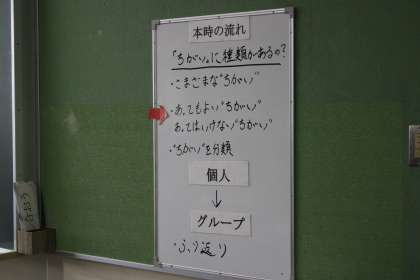 本時の流れ
「ちがい」に種類があるの？
・さまざまな"ちがい"
・あってもよい"ちがい"
あってはいけない"ちがい"
・"ちがい"を分類
個人
↓
グループ
・ふり返り